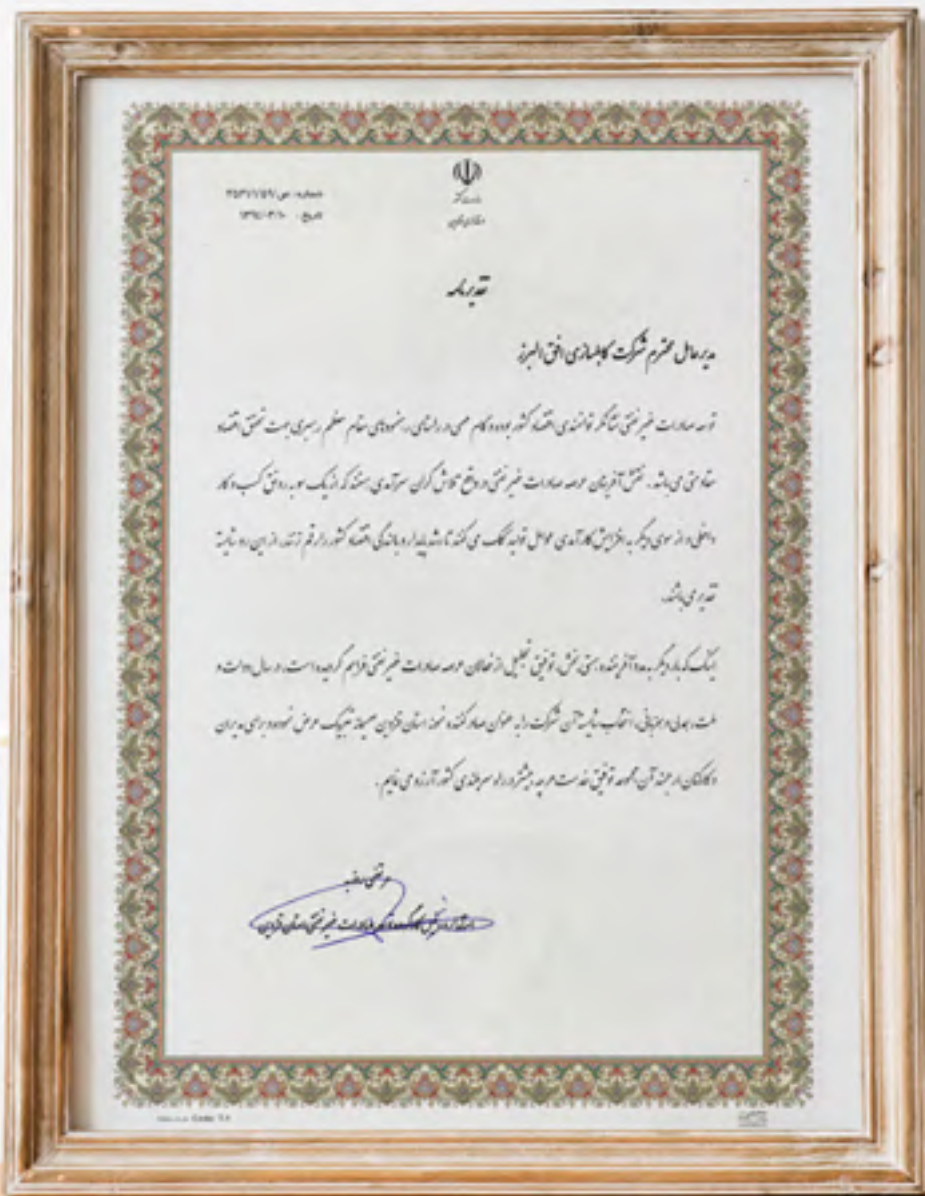 شماره: ص/
تاریخ:
وزارت کشور
استانداری قزوین
تقدیرنامه
مدیرعامل محترم شرکت کابلسازی افق البرز
توسعه صادرات غیرنفتی نشانگر توانمندی اقتصاد کشور بوده و گام مهمی در راستای رهنمودهای مقام معظم رهبری جهت تحقق اقتصاد
مقاومتی می باشد. نقش آفرینان عرصه صادرات غیرنفتی در واقع تلاش گران سرآمدی هستند که از یک سو به رونق کسب و کار
داخلی و از سوی دیگر به افزایش کارآمدی عوامل تولید کمک می کنند تا رشد پایدار و بالندگی اقتصاد کشور را رقم زنند، از این رو شایسته
تقدیر می باشند.
اینک که بار دیگر به مدد آفریننده هستی بخش، توفیق تجلیل از فعالان عرصه صادرات غیرنفتی فراهم گردیده است، در سال دولت و
ملت، همدلی و همزبانی، انتخاب شایسته آن شرکت را به عنوان صادرکننده نمونه استان قزوین صمیمانه تبریک عرض نموده و برای مدیران
و کارکنان ارجمند آن مجموعه توفیق خدمت هر چه بیشتر در راه سربلندی کشور آرزو می نمایم.
مرتضی روزبه
استاندار و رئیس کارگروه توسعه صادرات غیرنفتی استان قزوین